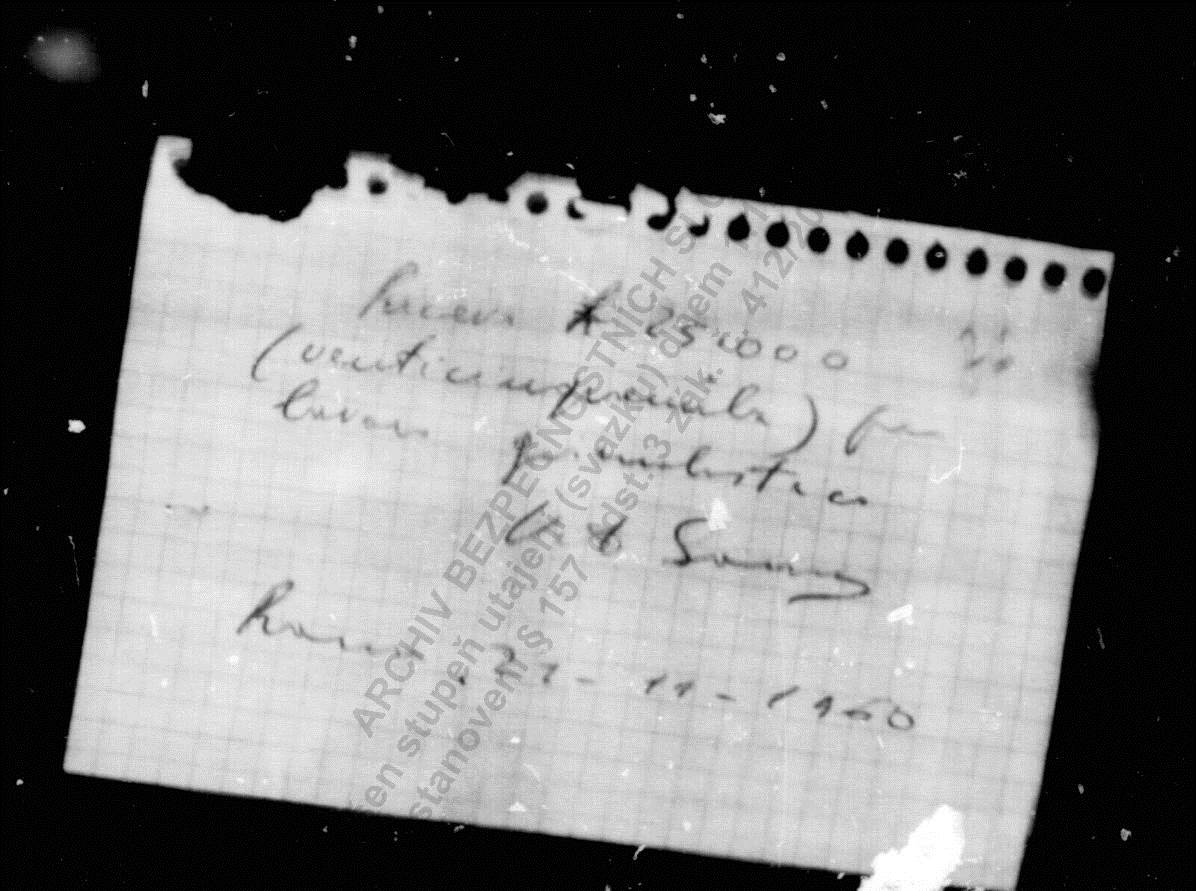 Ricevo £ 25.000
(venticinquemila) per
lavoro giornalistico
Roma. 21-11-1960
ARCHIV BEZPEČNOSTNÍCH
stupeň utajení (svazku) dnem
stanovení § 157 odst. 3 zák. 412/20